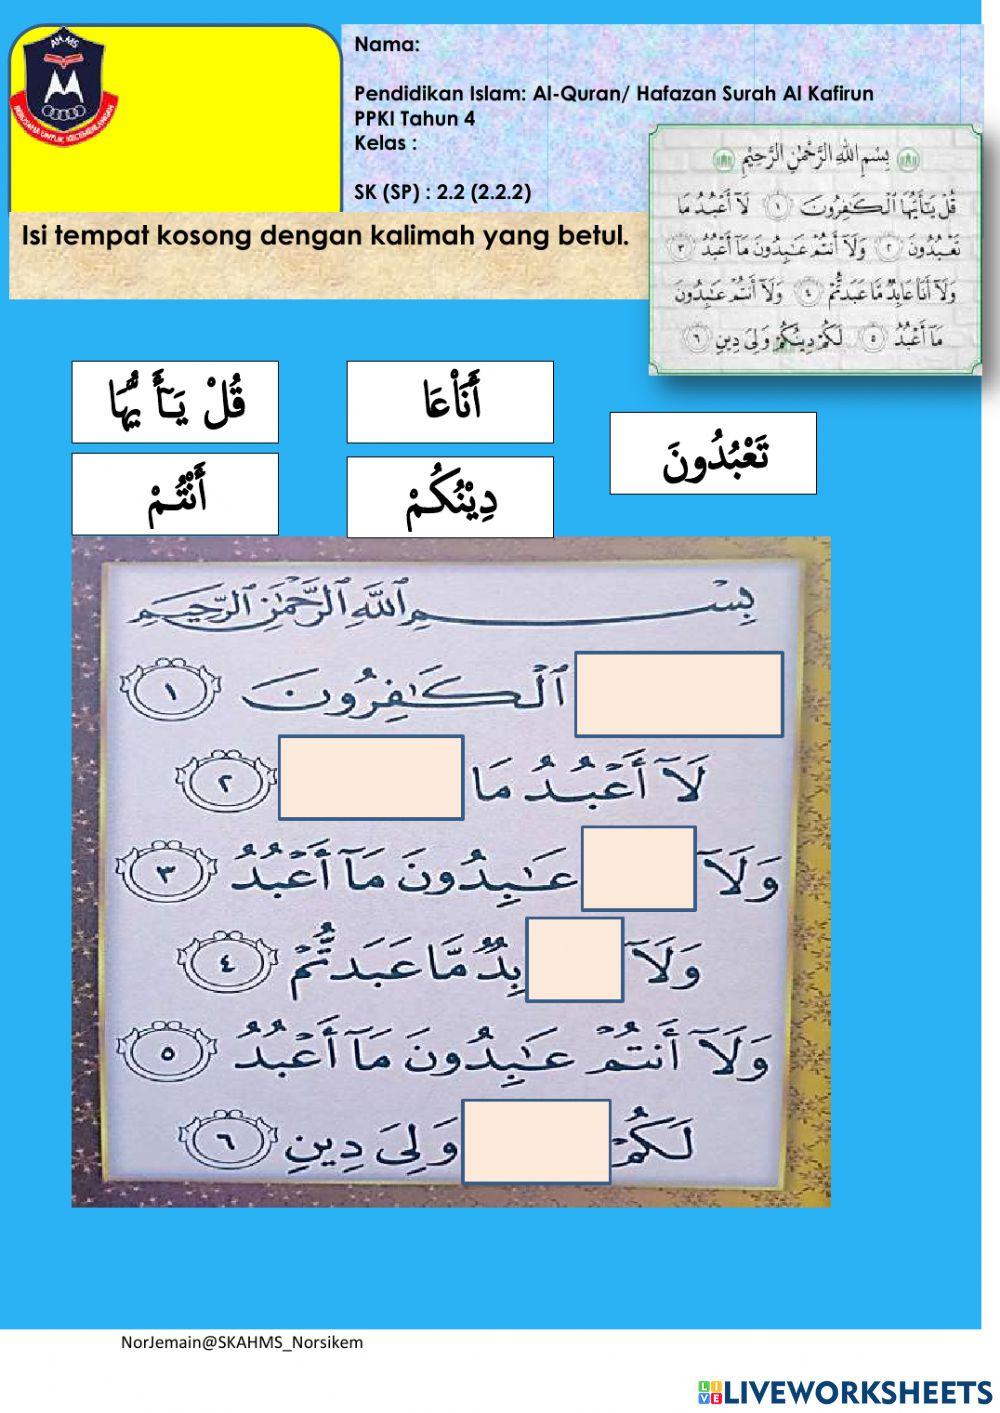 Nama:
Pendidikan Islam: Al-Quran/ Hafazan Surah Al Kafirun
PPKI Tahun 4
Kelas :
SK (SP) : 2.2 (2.2.2)
Isi tempat kosong dengan kalimah yang betul.
بِسْمِ اللهِ الرَّحْمٰنِ الرَّحِيْمِ
قُلْ يَـٰٓأَيُّهَا ٱلْكَـٰفِرُونَ ١ لَآ أَعْبُدُ مَا
تَعْبُدُونَ ٢ وَلَآ أَنتُمْ عَـٰبِدُونَ مَآ أَعْبُدُ ٣
وَلَآ أَنَا۠ عَابِدٌ مَّا عَبَدتُّمْ ٤ وَلَآ أَنتُمْ عَـٰبِدُونَ
مَآ أَعْبُدُ ٥ لَكُمْ دِينُكُمْ وَلِىَ دِينِ ٦
قُلْ يَـٓأَ يُّهَا
أَنَا۠عَا
تَعْبُدُونَ
أَنْتُمْ
دِيْنُكُمْ
بِسْمِ ٱللَّهِ ٱلرَّحْمَٰنِ ٱلرَّحِيمِ
ٱلْكَـٰفِرُونَ ١
لَآ أَعْبُدُ مَا ٢
وَلَآ عَـٰبِدُونَ مَآ أَعْبُدُ ٣
وَلَآ بِدٌ مَّا عَبَدتُّمْ ٤
وَلَآ أَنتُمْ عَـٰبِدُونَ مَآ أَعْبُدُ ٥
لَكُمْ وَلِىَ دِينِ ٦
NorJemain@SKAHMS_Norsikem
LIVEWORKSHEETS